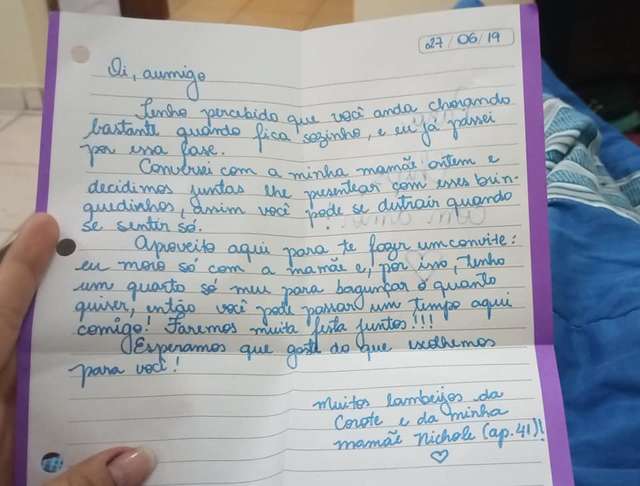 27/06/19
Oi, aumigo
Tenho percebido que você anda chorando
bastante quando fica sozinho, e eu já passei
por essa fase.
Conversei com a minha mamãe ontem e
decidimos juntas lhe presentear com esses brin-
quedinhos, assim você pode se distrair quando
se sentir só.
Aproveito aqui para te fazer um convite:
eu moro só com a mamãe e, por isso, tenho
um quarto só meu para bagunçar o quanto
quiser, então você pode passar um tempo aqui
comigo! Faremos muita festa juntos!!!
Esperamos que goste do que escolhemos
para você!
Muitos lambeijos da
Corote e da minha
mamãe Nichole (ap. 41)!